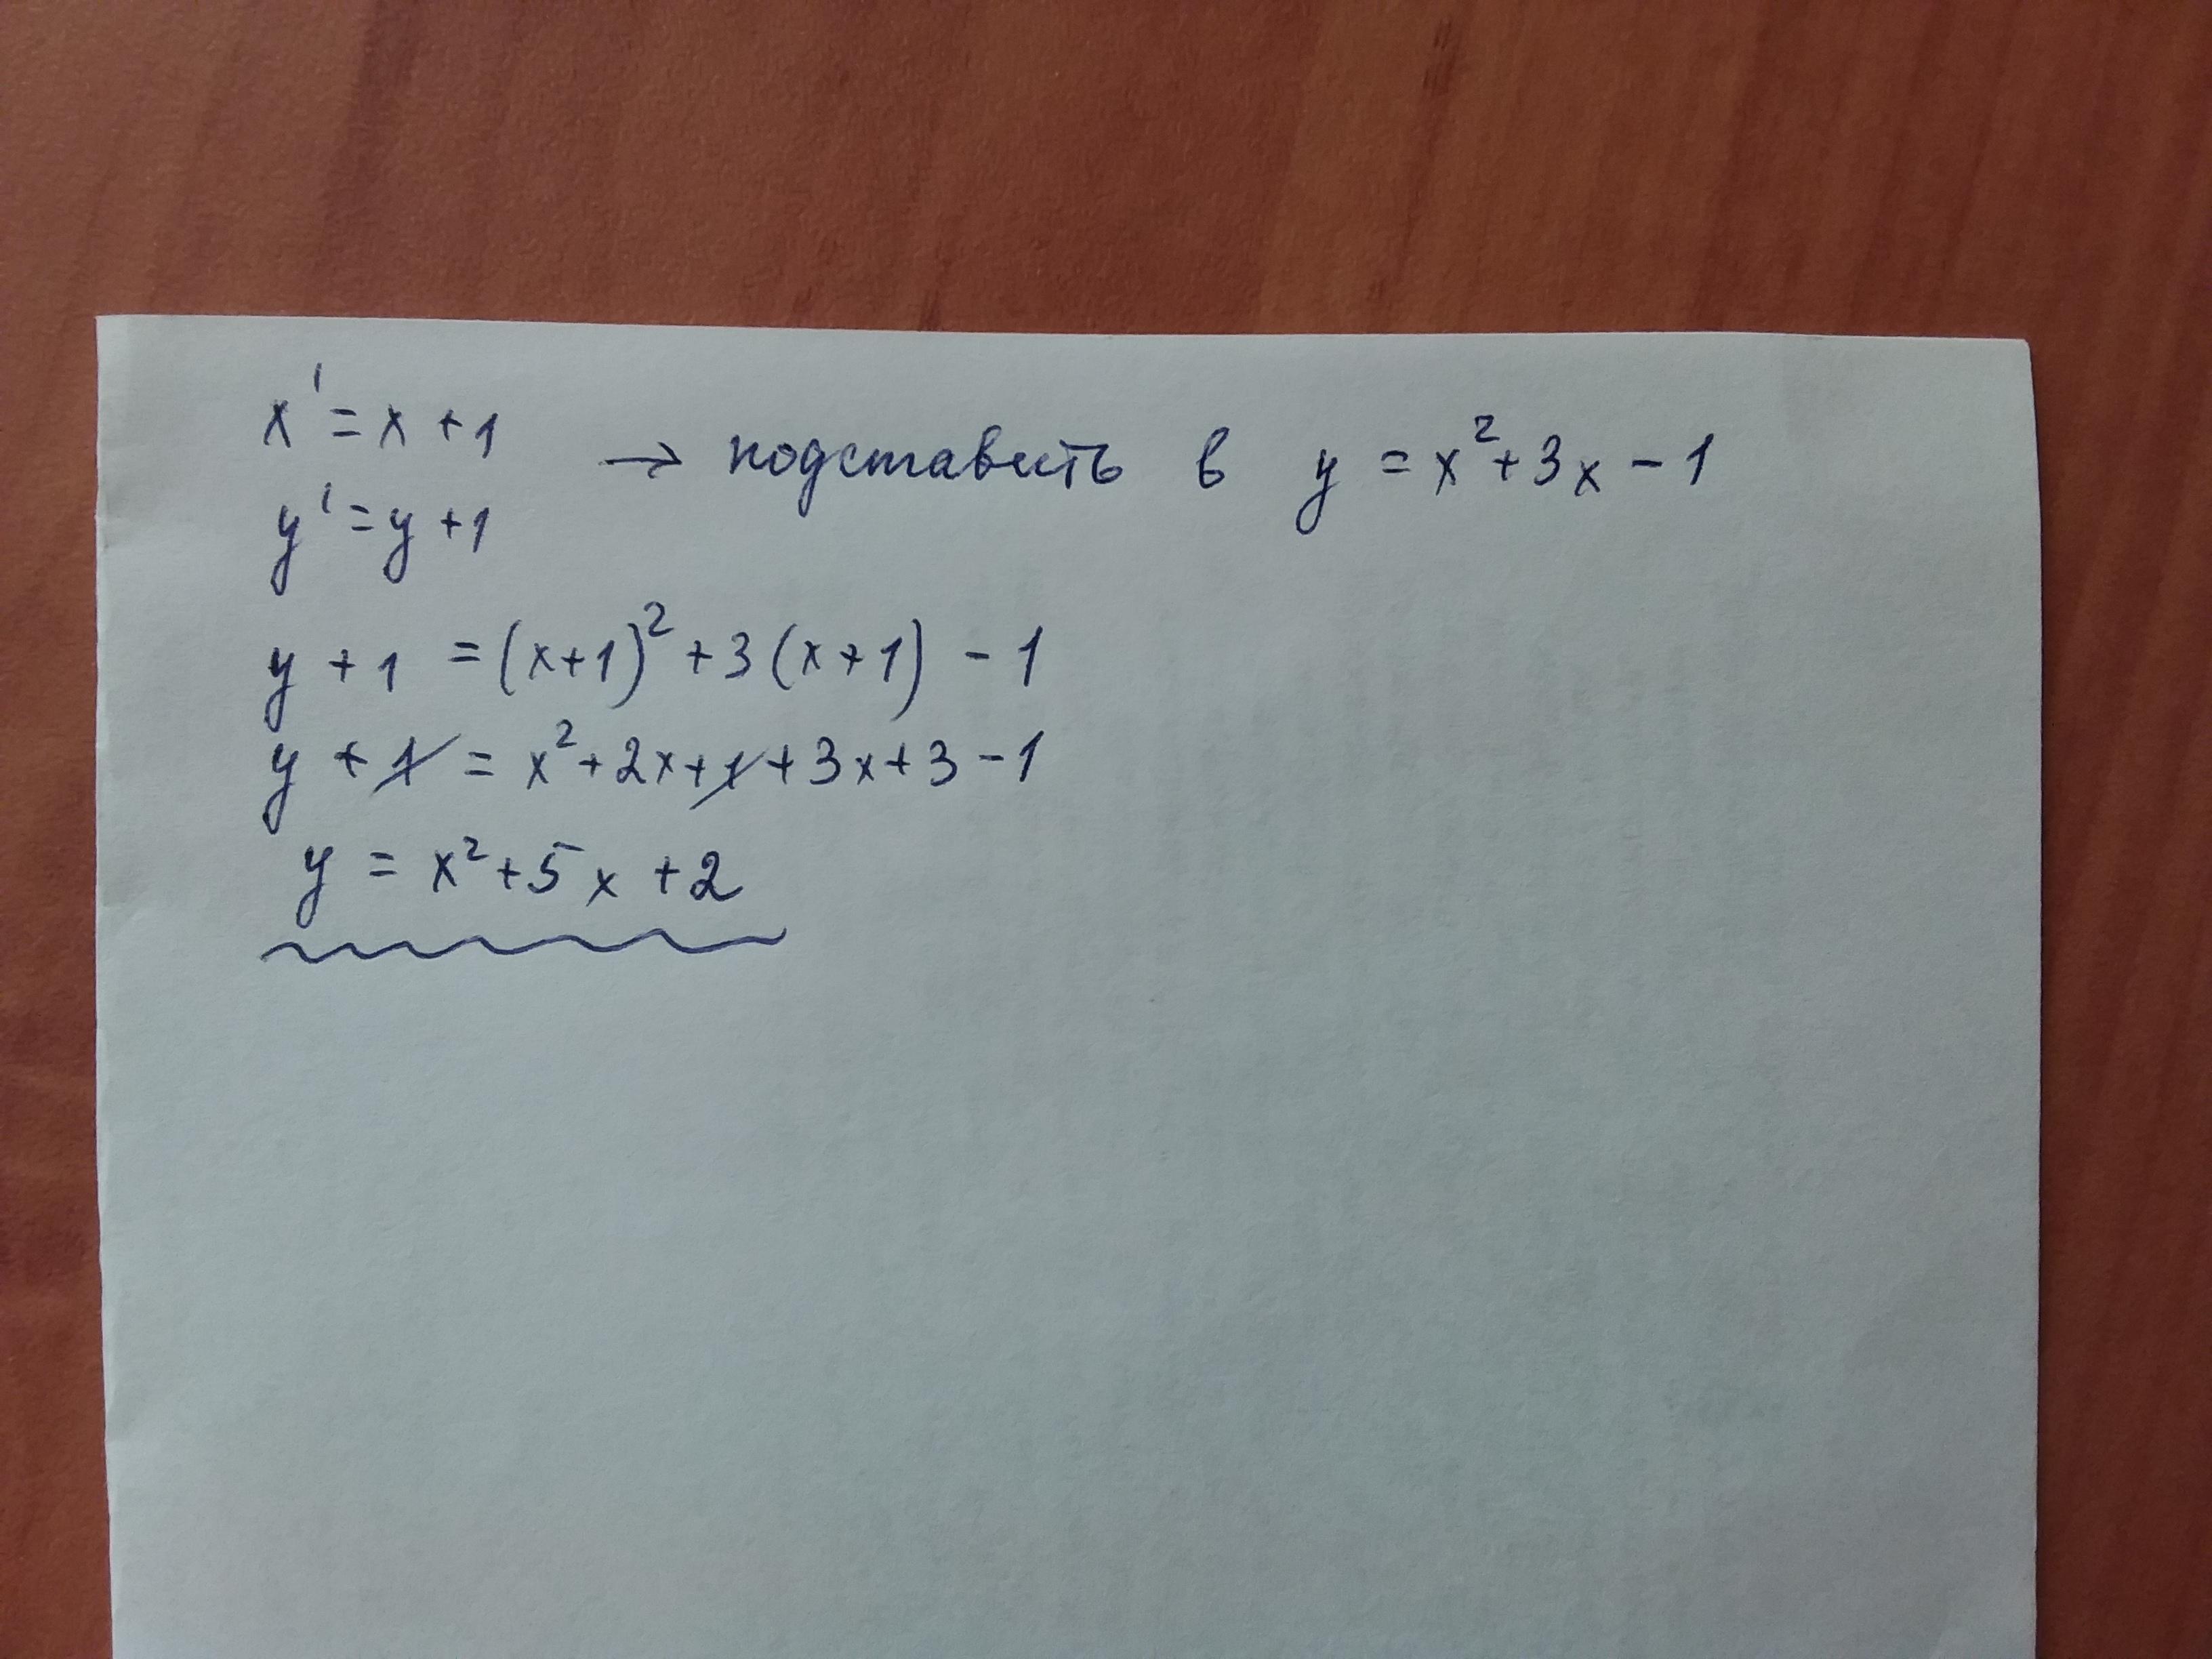 x' = x + 1
y' = y + 1
→ подставить в y = x² + 3x − 1
y + 1 = (x+1)² + 3(x+1) − 1
y + 1 = x² + 2x + 1 + 3x + 3 − 1
y = x² + 5x + 2